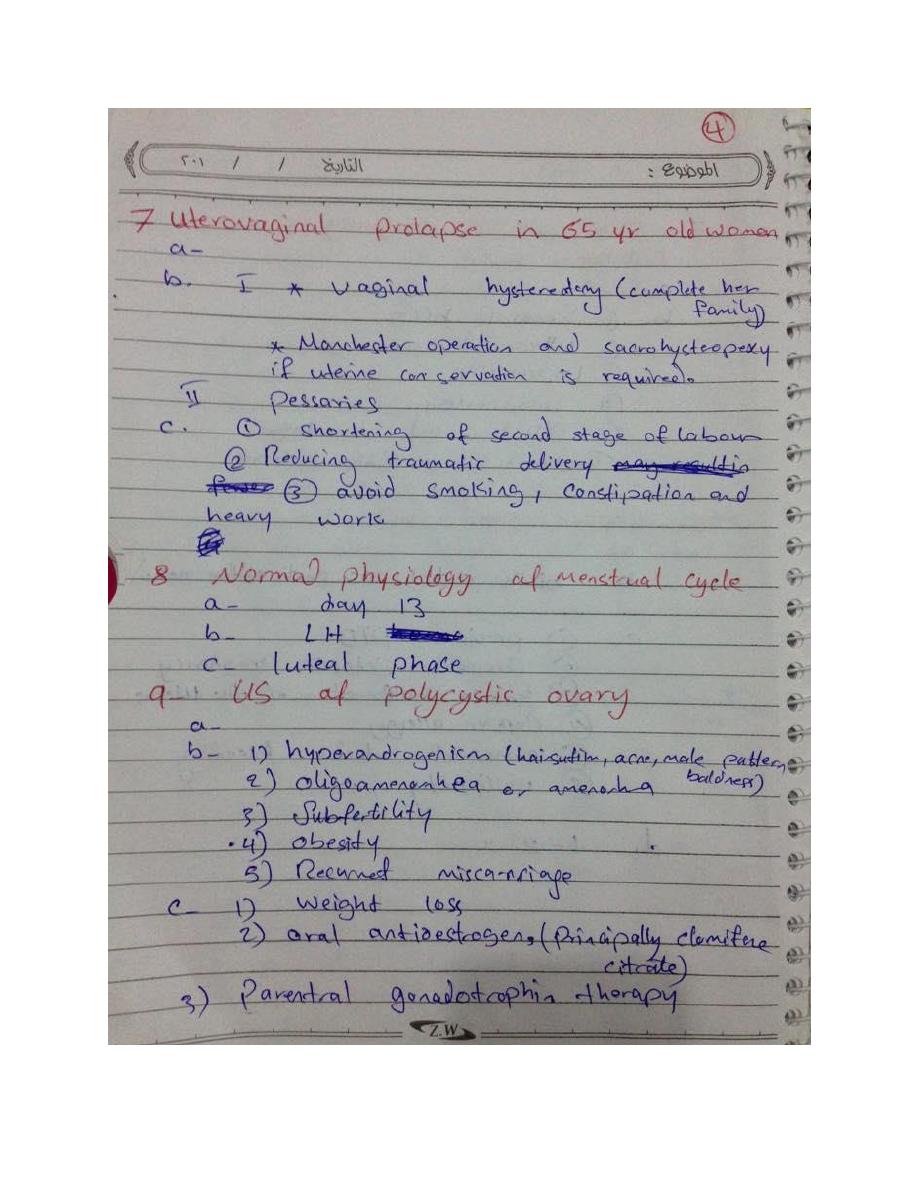 4
الموضوع : التاريخ / / ٢٠١
7 Uterovaginal prolapse in 65 yr old women
a-
b. I * vaginal hysterectomy (complete her
family)
* Manchester operation and sacrohysteopexy
if uterine conservation is required.
II Pessaries
c. ① shortening of second stage of labour
② Reducing traumatic delivery may result in
fewer ③ avoid smoking, constipation and
heavy work
8 Normal physiology of menstrual cycle
a- day 13
b- LH
c- luteal phase
9- US of polycystic ovary
a-
b- 1) hyperandrogenism (hairsutim, acne, male pattern
baldness)
2) oligoamenorrhea or amenorrha
3) Subfertility
4) obesity
5) Recurred misca-rriage
c- 1) weight loss
2) oral antioestrogens (principally clomifene
citrate)
3) Parentral gonadotrophin therapy
Z.W